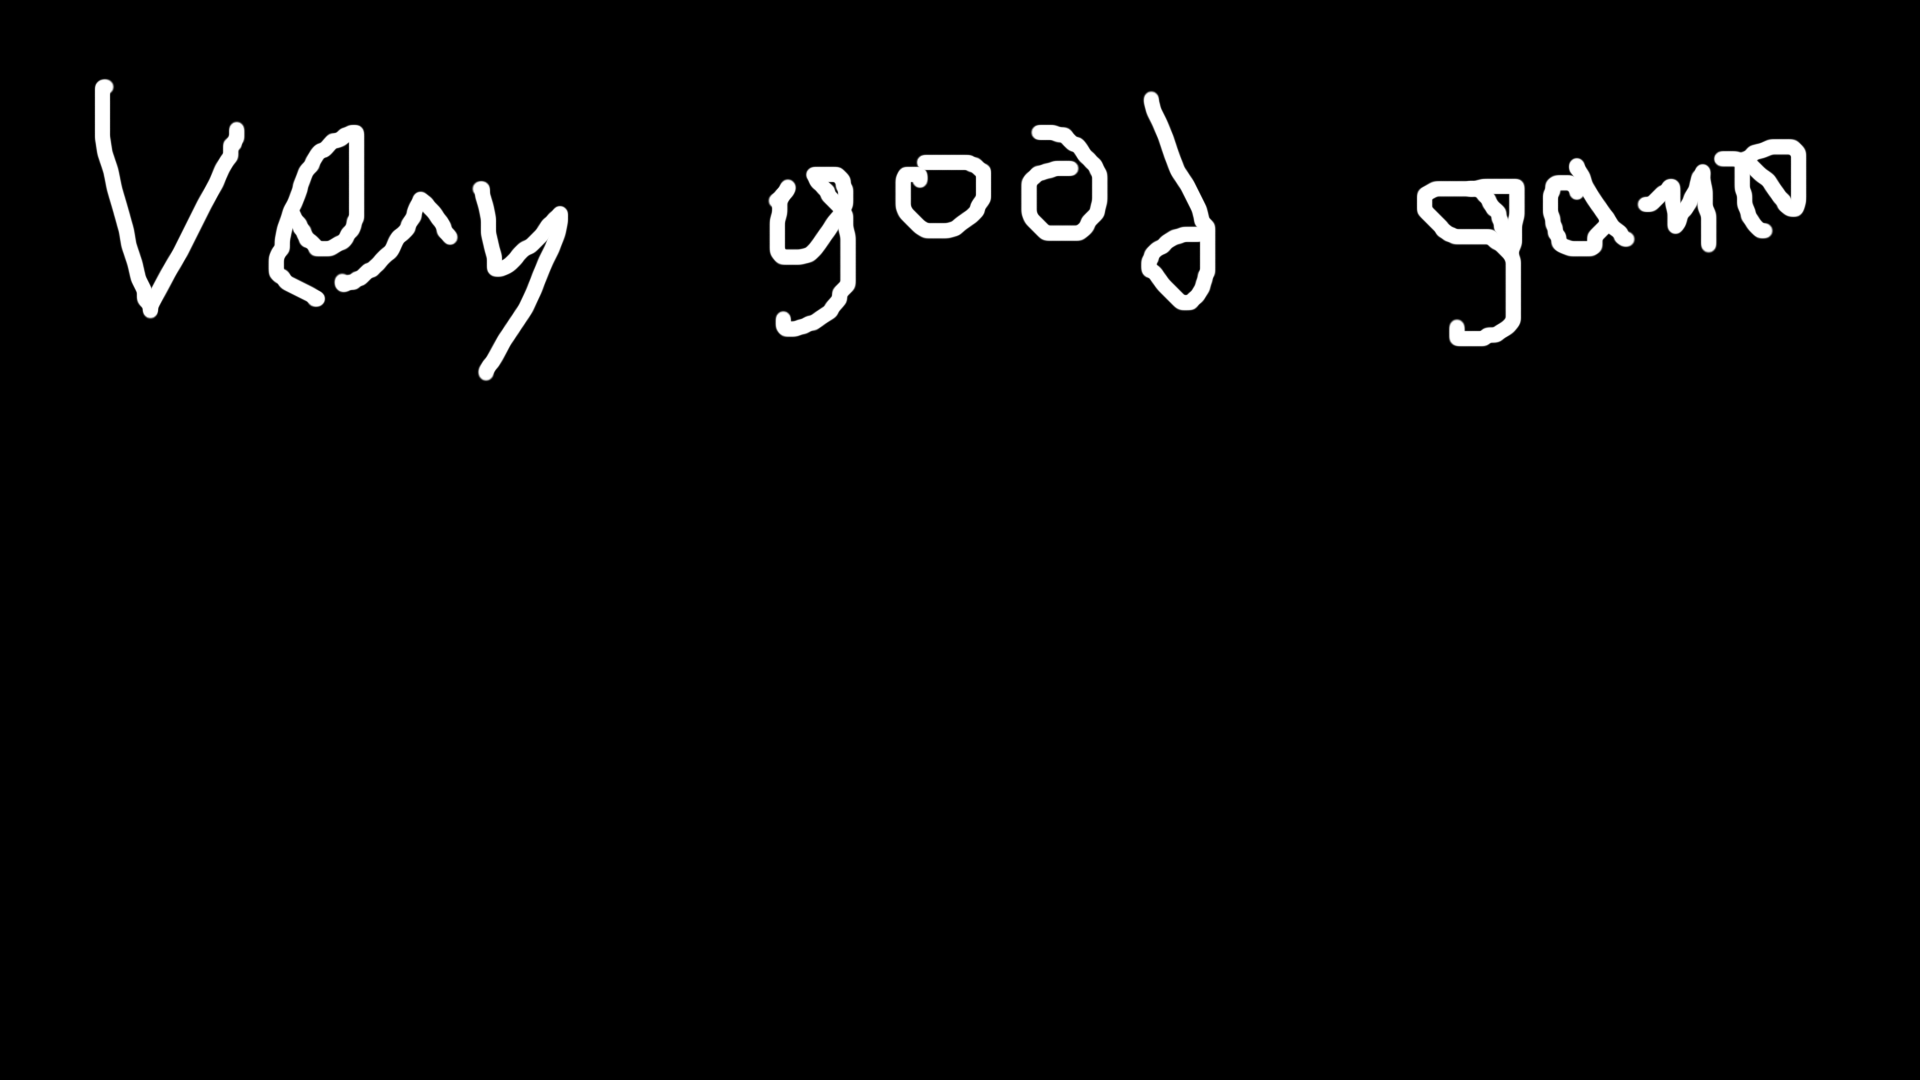 Very good game